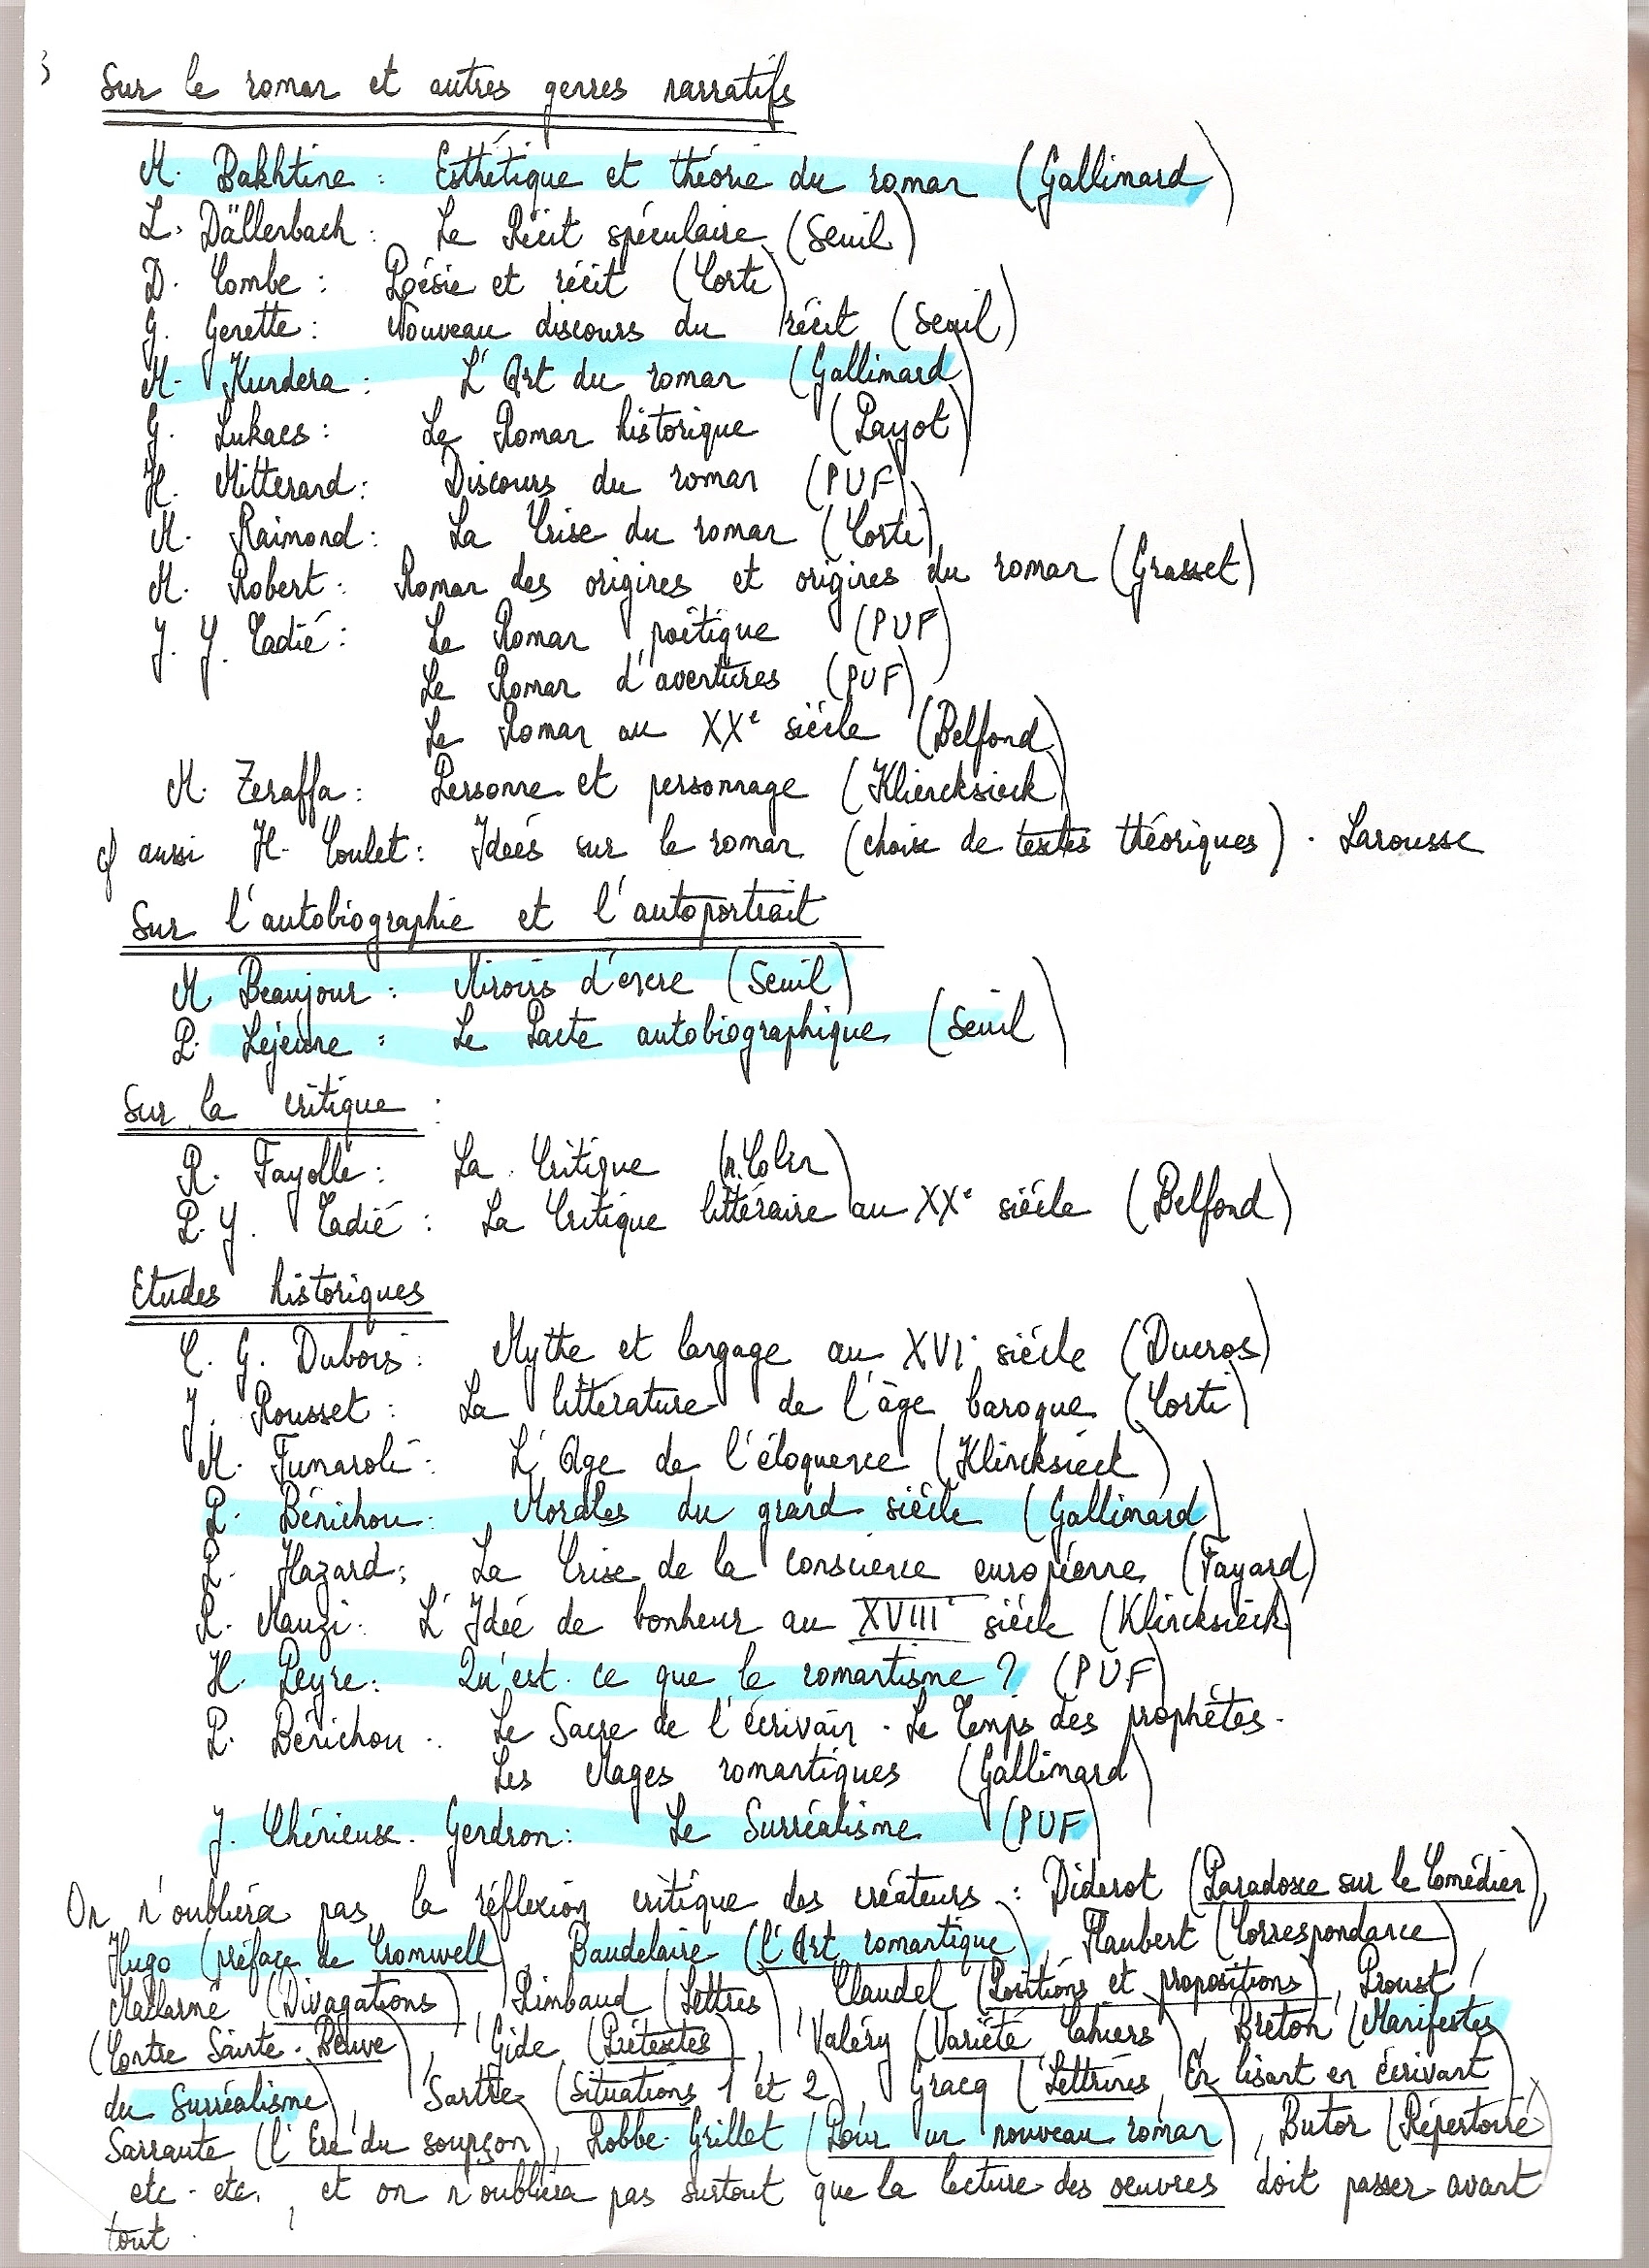 3
Sur le roman et autres genres narratifs
M. Bakhtine : Esthétique et théorie du roman (Gallimard)
L. Dällenbach : Le Récit spéculaire (Seuil)
D. Combe : Poésie et récit (Corti)
G. Genette : Nouveau discours du récit (Seuil)
M. Kundera : L'Art du roman (Gallimard)
G. Lukacs : Le Roman historique (Payot)
H. Mitterand : Discours du roman (PUF)
M. Raimond : La Crise du roman (Corti)
M. Robert : Roman des origines et origines du roman (Grasset)
J. Y. Tadié : Le Roman poétique (PUF)
Le Roman d'aventures (PUF)
Le Roman au XXe siècle (Belfond)
M. Zeraffa : Personne et personnage (Kliencksieck)
cf aussi H. Coulet : Idées sur le roman (choix de textes théoriques) . Larousse
Sur l'autobiographie et l'autoportrait
M Beaujour : Miroirs d'encre (Seuil)
P. Lejeune : Le Pacte autobiographique (Seuil)
Sur la critique :
R. Fayolle : La Critique (A. Colin)
P. Y. Tadié : La Critique littéraire au XXe siècle (Belfond)
Etudes historiques
C. G. Dubois : Mythe et langage au XVIe siècle (Ducros)
J. Rousset : La littérature de l'âge baroque (Corti)
M. Fumaroli : L'Age de l'éloquence (Klincksieck)
P. Bénichou : Morales du grand siècle (Gallimard)
P. Hazard : La Crise de la conscience européenne (Fayard)
R. Mauzi : L'Idée de bonheur au XVIIIe siècle (Klincksieck)
H. Peyre : Qu'est-ce que le romantisme ? (PUF)
P. Bénichou : Le Sacre de l'écrivain . Le Temps des prophètes .
Les Mages romantiques (Gallimard)
J. Chénieux-Gendron : Le Surréalisme (PUF)
On n'oubliera pas la réflexion critique des créateurs : Diderot (Paradoxe sur le Comédien),
Hugo (préface de Cromwell), Baudelaire (l'Art romantique), Flaubert (Correspondance),
Mallarmé (Divagations), Rimbaud (Lettres), Claudel (Positions et propositions), Proust
(Contre Sainte-Beuve), Gide (Prétextes), Valéry (Variété Cahiers), Breton (Manifestes
du Surréalisme), Sartre (Situations 1 et 2), Gracq (Lettrines, En lisant en écrivant)
Sarraute (l'Ere du soupçon), Robbe-Grillet (Pour un nouveau roman), Butor (Répertoire)
etc. etc. , et on n'oubliera pas surtout que la lecture des oeuvres doit passer avant
tout .